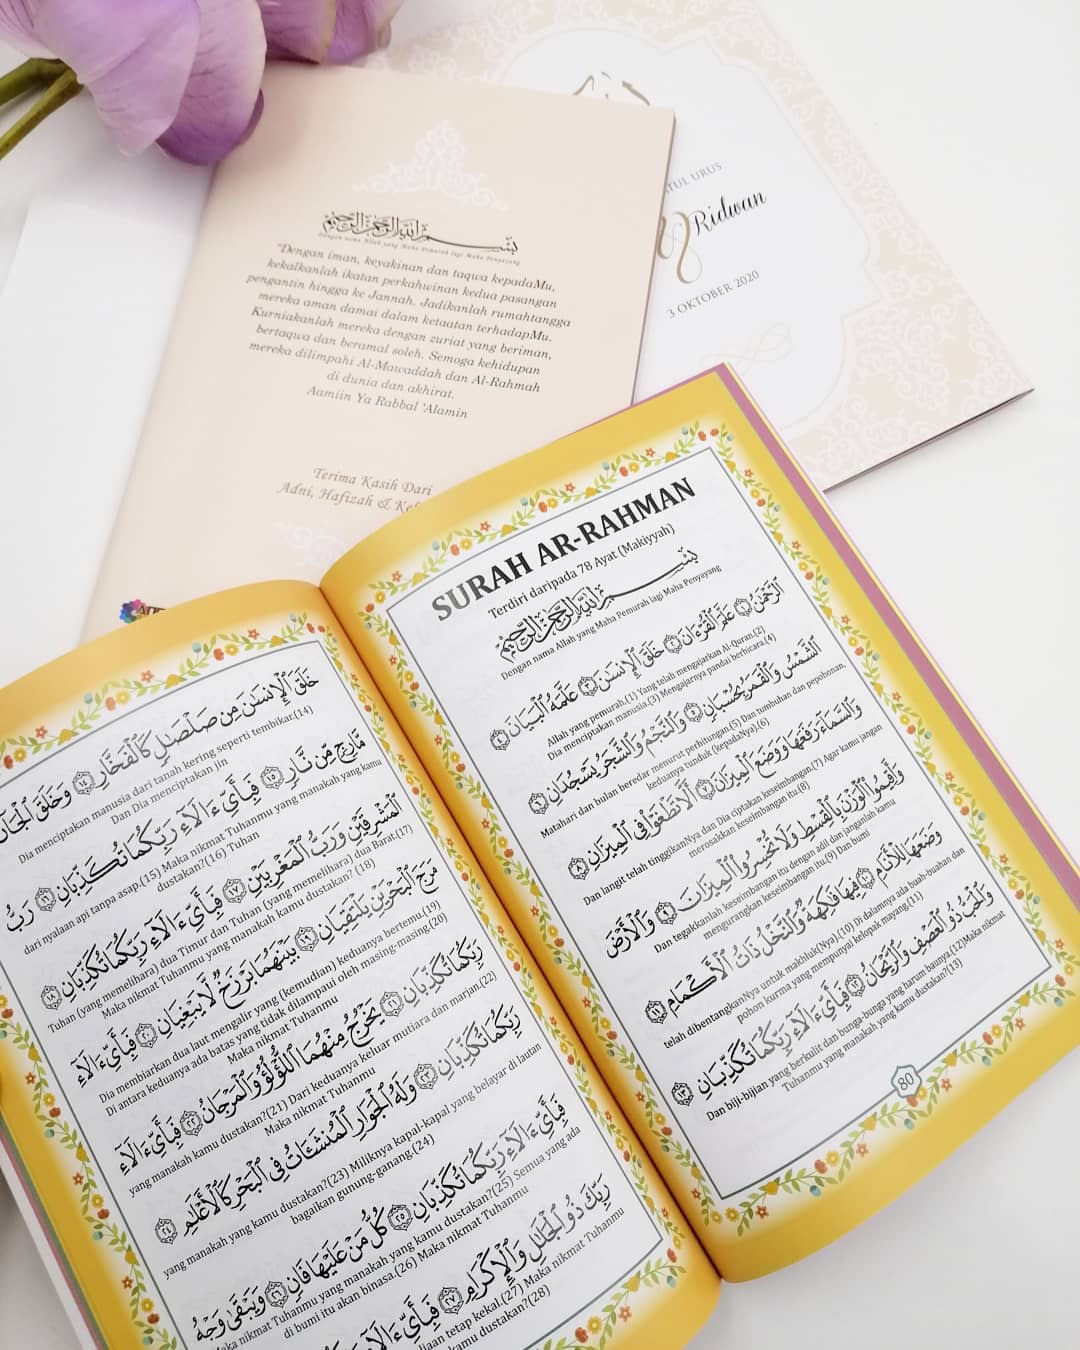 بِسْمِ اللَّهِ الرَّحْمَٰنِ الرَّحِيمِ
Dengan nama Allah yang Maha Pemurah lagi Maha Penyayang
"Dengan iman, keyakinan dan taqwa kepadaMu,
kekalkanlah ikatan perkahwinan kedua pasangan
pengantin hingga ke Jannah. Jadikanlah rumahtangga
mereka aman damai dalam ketaatan terhadapMu.
Kurniakanlah mereka dengan zuriat yang beriman,
bertaqwa dan beramal soleh. Semoga kehidupan
mereka dilimpahi Al-Mawaddah dan Al-Rahmah
di dunia dan akhirat.
Aamiin Ya Rabbal 'Alamin
Terima Kasih Dari
Adni, Hafizah &
URUS
& Ridwan
3 OKTOBER 2020
SURAH AR-RAHMAN
Terdiri daripada 78 Ayat (Makiyyah)
بِسْمِ اللَّهِ الرَّحْمَٰنِ الرَّحِيمِ
Dengan nama Allah yang Maha Pemurah lagi Maha Penyayang
ٱلرَّحْمَٰنُ ١ عَلَّمَ ٱلْقُرْءَانَ ٢ خَلَقَ ٱلْإِنسَٰنَ ٣ عَلَّمَهُ ٱلْبَيَانَ ٤
Allah yang pemurah.(1) Yang telah mengajarkan Al-Quran.(2)
Dia menciptakan manusia.(3) Mengajarnya pandai berbicara.(4)
ٱلشَّمْسُ وَٱلْقَمَرُ بِحُسْبَانٍ ٥ وَٱلنَّجْمُ وَٱلشَّجَرُ يَسْجُدَانِ ٦
Matahari dan bulan beredar menurut perhitungan.(5) Dan tumbuhan dan pepohonan,
keduanya tunduk (kepadaNya).(6)
وَٱلسَّمَآءَ رَفَعَهَا وَوَضَعَ ٱلْمِيزَانَ ٧ أَلَّا تَطْغَوْا۟ فِى ٱلْمِيزَانِ ٨
Dan langit telah tinggikanNya dan Dia ciptakan keseimbangan.(7) Agar kamu jangan
merosakan keseimbangan itu.(8)
وَأَقِيمُوا۟ ٱلْوَزْنَ بِٱلْقِسْطِ وَلَا تُخْسِرُوا۟ ٱلْمِيزَانَ ٩ وَٱلْأَرْضَ
Dan tegakkanlah keseimbangan itu dengan adil dan janganlah kamu
mengurangkan keseimbangan itu.(9) Dan bumi
وَضَعَهَا لِلْأَنَامِ ١٠ فِيهَا فَٰكِهَةٌ وَٱلنَّخْلُ ذَاتُ ٱلْأَكْمَامِ ١١
telah dibentangkanNya untuk makhluk(Nya).(10) Di dalamnya ada buah-buahan dan
pohon kurma yang mempunyai kelopak mayang.(11)
وَٱلْحَبُّ ذُو ٱلْعَصْفِ وَٱلرَّيْحَانُ ١٢ فَبِأَىِّ ءَالَآءِ رَبِّكُمَا تُكَذِّبَانِ ١٣
Dan biji-bijian yang berkulit dan bunga-bunga yang harum baunya.(12)Maka nikmat
Tuhanmu yang manakah yang kamu dustakan?(13)
80
خَلَقَ ٱلْإِنسَٰنَ مِن صَلْصَٰلٍ كَٱلْفَخَّارِ ١٤ وَخَلَقَ ٱلْجَآنَّ
Dia menciptakan manusia dari tanah kering seperti tembikar.(14)
Dan Dia menciptakan jin
مَّارِجٍ مِّن نَّارٍ ١٥ فَبِأَىِّ ءَالَآءِ رَبِّكُمَا تُكَذِّبَانِ ١٦ رَبُّ
dari nyalaan api tanpa asap.(15) Maka nikmat Tuhanmu yang manakah yang kamu
dustakan?(16) Tuhan
ٱلْمَشْرِقَيْنِ وَرَبُّ ٱلْمَغْرِبَيْنِ ١٧ فَبِأَىِّ ءَالَآءِ رَبِّكُمَا تُكَذِّبَانِ ١٨
Tuhan (yang memelihara) dua Timur dan Tuhan (yang memelihara) dua Barat.(17)
Maka nikmat Tuhanmu yang manakah kamu dustakan? (18)
مَرَجَ ٱلْبَحْرَيْنِ يَلْتَقِيَانِ ١٩ بَيْنَهُمَا بَرْزَخٌ لَّا يَبْغِيَانِ ٢٠ فَبِأَىِّ ءَالَآءِ
Dia membiarkan dua laut mengalir yang (kemudian) keduanya bertemu.(19)
Di antara keduanya ada batas yang tidak dilampaui oleh masing-masing.(20)
Maka nikmat Tuhanmu
رَبِّكُمَا تُكَذِّبَانِ ٢١ يَخْرُجُ مِنْهُمَا ٱللُّؤْلُؤُ وَٱلْمَرْجَانُ ٢٢ فَبِأَىِّ ءَالَآءِ
yang manakah kamu dustakan?(21) Dari keduanya keluar mutiara dan marjan.(22)
Maka nikmat Tuhanmu
رَبِّكُمَا تُكَذِّبَانِ ٢٣ وَلَهُ ٱلْجَوَارِ ٱلْمُنشَـَٔاتُ فِى ٱلْبَحْرِ كَٱلْأَعْلَٰمِ ٢٤
yang manakah yang kamu dustakan?(23) Miliknya kapal-kapal yang belayar di lautan
bagaikan gunung-ganang.(24)
فَبِأَىِّ ءَالَآءِ رَبِّكُمَا تُكَذِّبَانِ ٢٥ كُلُّ مَنْ عَلَيْهَا فَانٍ ٢٦ وَيَبْقَىٰ وَجْهُ
Maka nikmat Tuhanmu yang manakah yang kamu dustakan?(25) Semua yang ada
di bumi itu akan binasa.(26) Maka nikmat Tuhanmu
رَبِّكَ ذُو ٱلْجَلَٰلِ وَٱلْإِكْرَامِ ٢٧ فَبِأَىِّ ءَالَآءِ
tetap kekal.(27) Maka nikmat Tuhanmu
kamu dustakan?(28)